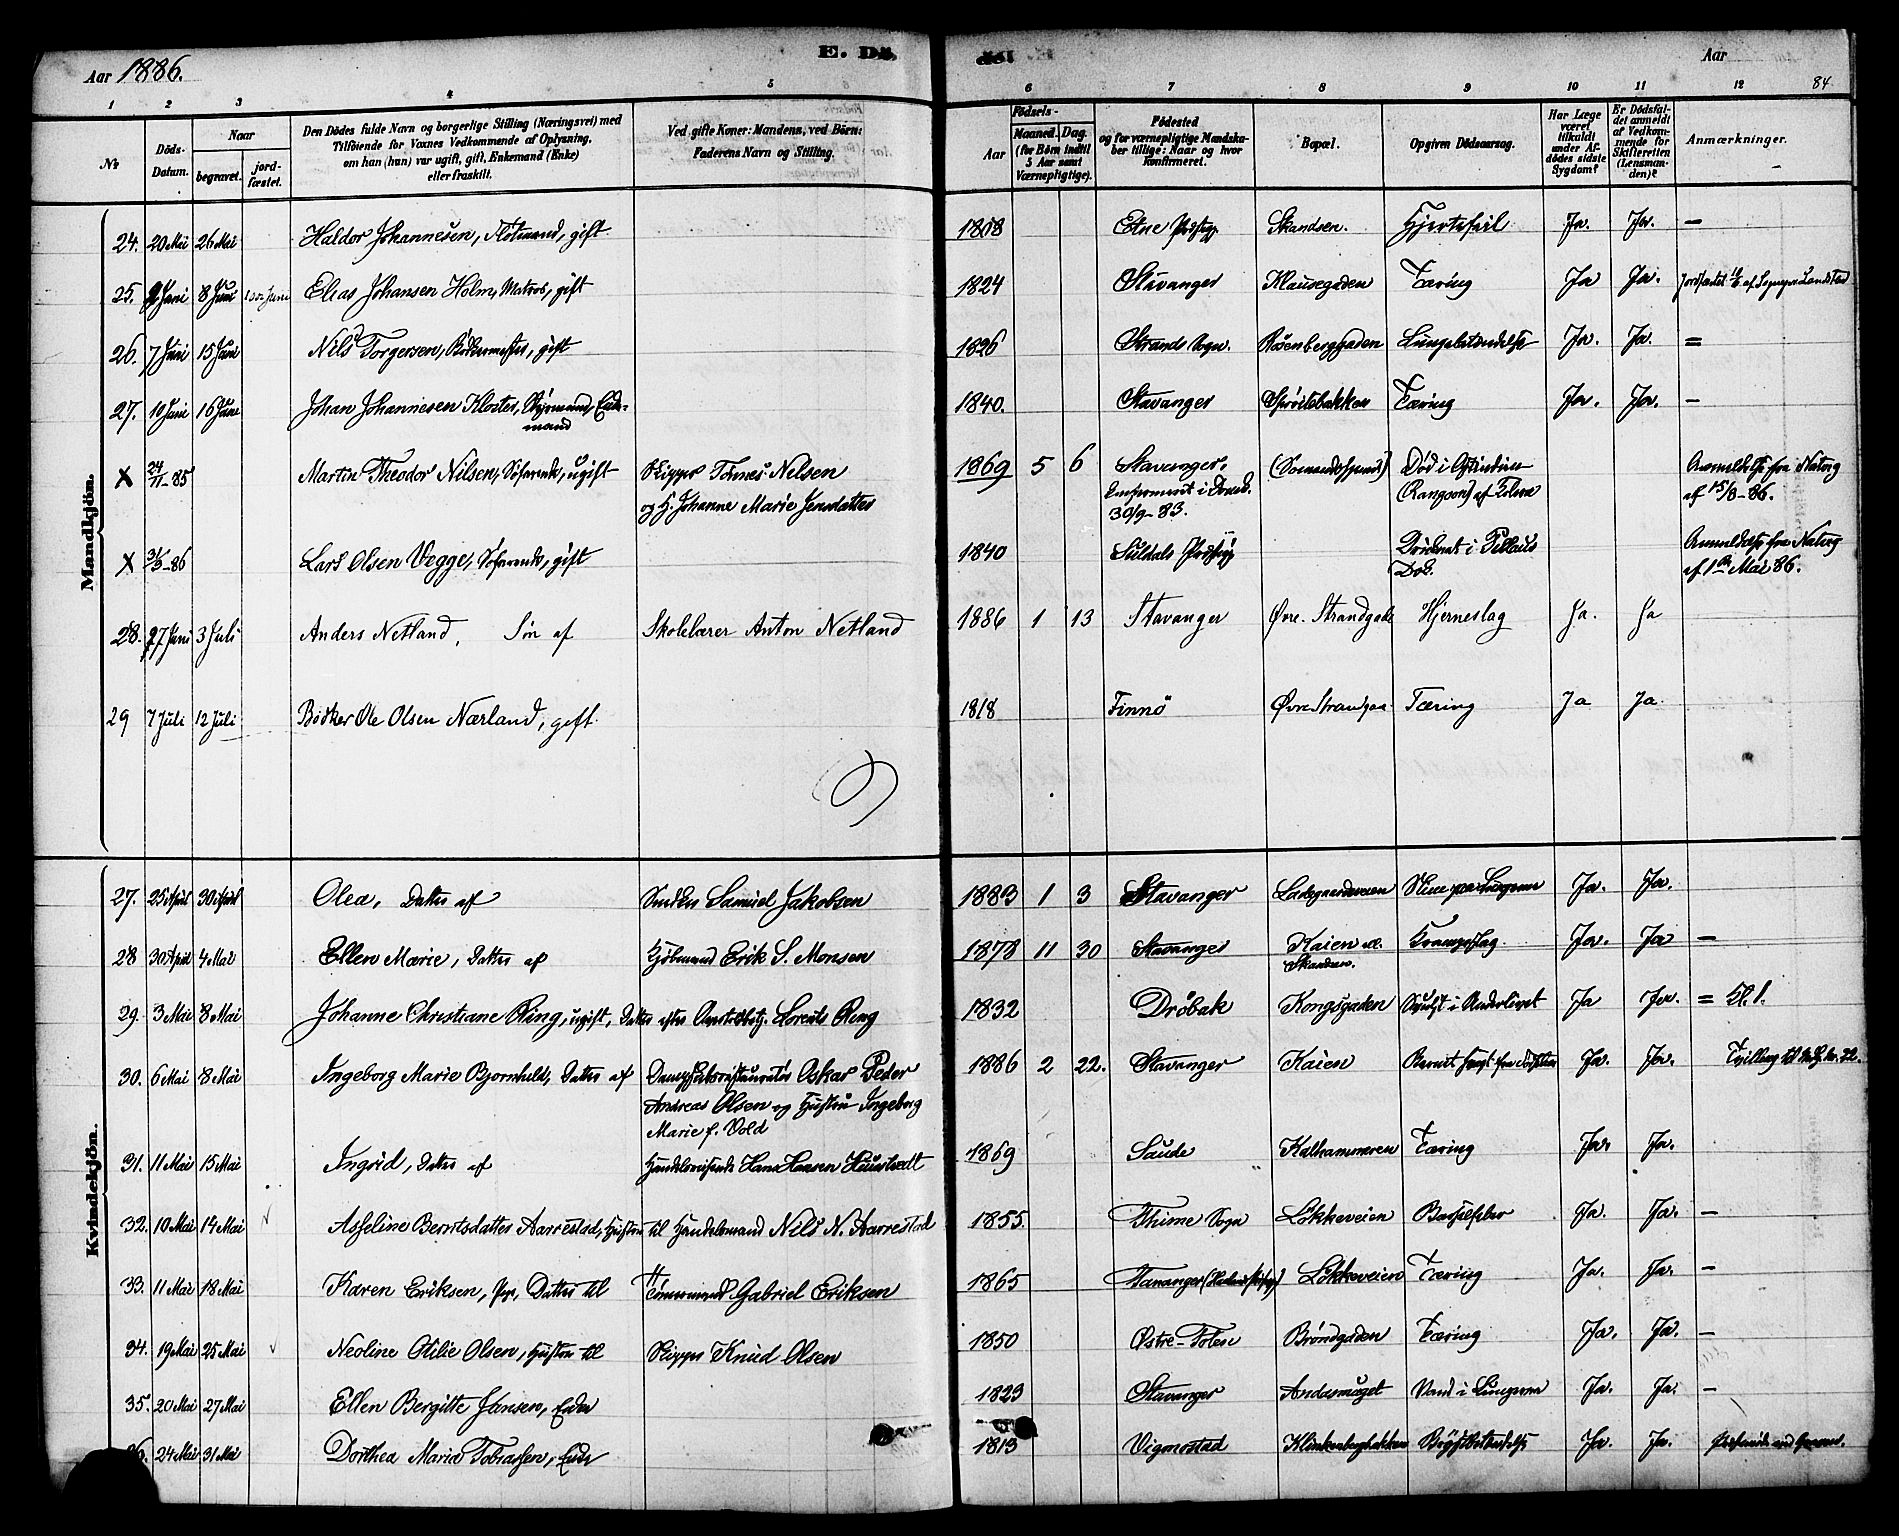 E. Dö, öde
Aar 1886.
Aar
84
1 2 3 4 5 6 7 8 9 10 11 12
№
Döds-Datum.
Naar
begravet.
jord-fæstet.
Den Dödes fulde Navn og borgerlige Stilling (Næringsvei) med
Tilföiende for Voxnes Vedkommende af Oplysning,
om han (hun) var ugift, gift, Enkemand (Enke)
eller fraskilt.
Ved gifte Koner: Mandens, ved Börn:
Faderens Navn og Stilling.
Födsels-
Aar
Maaned. Dag.
(for Börn indtil
5 Aar samt
Værnepligtige).
Födested
og for værnepligtige Mandska-
ber tillige: Naar og hvor
konfirmeret.
Bopæl.
Opgiven Dödsaarsag.
Har Læge
været
tilkaldt
under Af-
dödes sidste
Sygdom?
Er Dödsfal-
det anmeldt
af Vedkom-
mende for
Skifteretten
(Lensman-
den)?
Anmærkninger.
Mandkjön.
24. 20 Mai 26 Mai Haldor Johannesen, gift 1818 Etne Skandsen. Hjertefeil Ja. Ja. —
25. Juni 8 Juni Elias Johansen Holm, Matros, gift 1824 Stavanger Klausegaden Tæring Ja Ja.
26. 7 Juni 15 Juni Nils Torgersen, gift 1826 Strands Sogn. Rosenberggaden Lungebetændelse Ja. Ja. =
27. 10 Juni 16 Juni Johan Johannesen Kloster, Styrmand, Enke-
mand 1840. Stavanger Sprøitebakken Tæring Ja. Ja. —
X 24/11-85 Martin Theodor Nilsen, Søfarende, ugift Skipper Tønnes Nelsen
og H. Johanne Marie Jensdatter 1869 5 6 Stavanger.
30/9-83. Død i
(Rangoon) af Anmeldelse fra
af 15/3-86.
X 31/3-86 Lars Olsen Vegge, Søfarende, gift 1840 Suldals Druknet i Pillaus
Dok. Anmeldelse fra
af 1ste Mai 86.
28. 27 Juni 3 Juli Anders Netland, Søn af Skolelærer Anton Netland 1886 1 13 Stavanger Øvre. Strandgade Hjerneslag Ja. Ja
29 7 Juli 12 Juli Bødker Ole Olsen Nærland, gift. 1818 Finnö Øvre Strandga Tæring Ja Ja.
Kvindekjön.
27. 25 April 30 April Olea, Datter af Samuel Jakobsen 1883 1 3 Stavanger Ladegaardsveien Ja. Ja.
28 30 April 4 Mai Ellen Marie, Datter af Kjøbmand Erik S. Monsen 1878 11 30 Stavanger Kaien
Skandsen. Krampeslag. Ja. Ja —
29. 3 Mai 8 Mai Johanne Christiane Ring, ugift, Datter efter Lorents Ring 1832 Drøbak Kongsgaden Svulst i Underlivet Ja Ja. =
30. 6 Mai 8 Mai Ingeborg Marie Bjornhild, Datter af Oskar Peder
Andreas Olsen og Hustru Ingeborg
Marie f. Vold 1886 2 22. Stavanger Kaien Ja. Ja. Tvilling til
31. 11 Mai 15 Mai Ingrid, Datter af Handelsreisende Hans Hansen 1869 Saude Kalhammeren Tæring Ja. Ja.
32. 10 Mai 14 Mai Asseline Berntsdatter Aarrestad, Hustru til Handelsmand Nils N. Aarrestad 1855 Thime Sogn Løkkeveien Barselfeber Ja. Ja. —
33. 11 Mai 18 Mai Karen Eriksen, Datter til Tømmermand Gabriel Eriksen 1865 Tananger Løkkeveien Tæring Ja. Ja. —
34. 19 Mai 25 Mai Neoline Otilie Olsen, Hustru til Skipper Knud Olsen 1850 Østre-Toten Brøndgaden Tæring Ja. Ja. —
35. 20 Mai 27 Mai Ellen Bergitte Jansen, Enke 1823 Stavanger Andasmaget Vand i Lungerne Ja. Ja. —
24 Mai 31 Mai Dorthea Maria Tobiassen, Enke 1813 Vigmostad Klinkenbergbakken Brystbetændelse Ja. Ja.